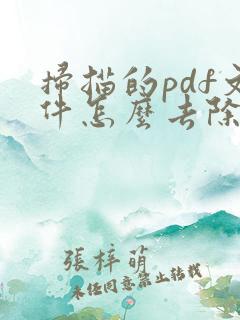 掃描的pdf文
件怎麼去除
張梓萌
未经同意禁止转载